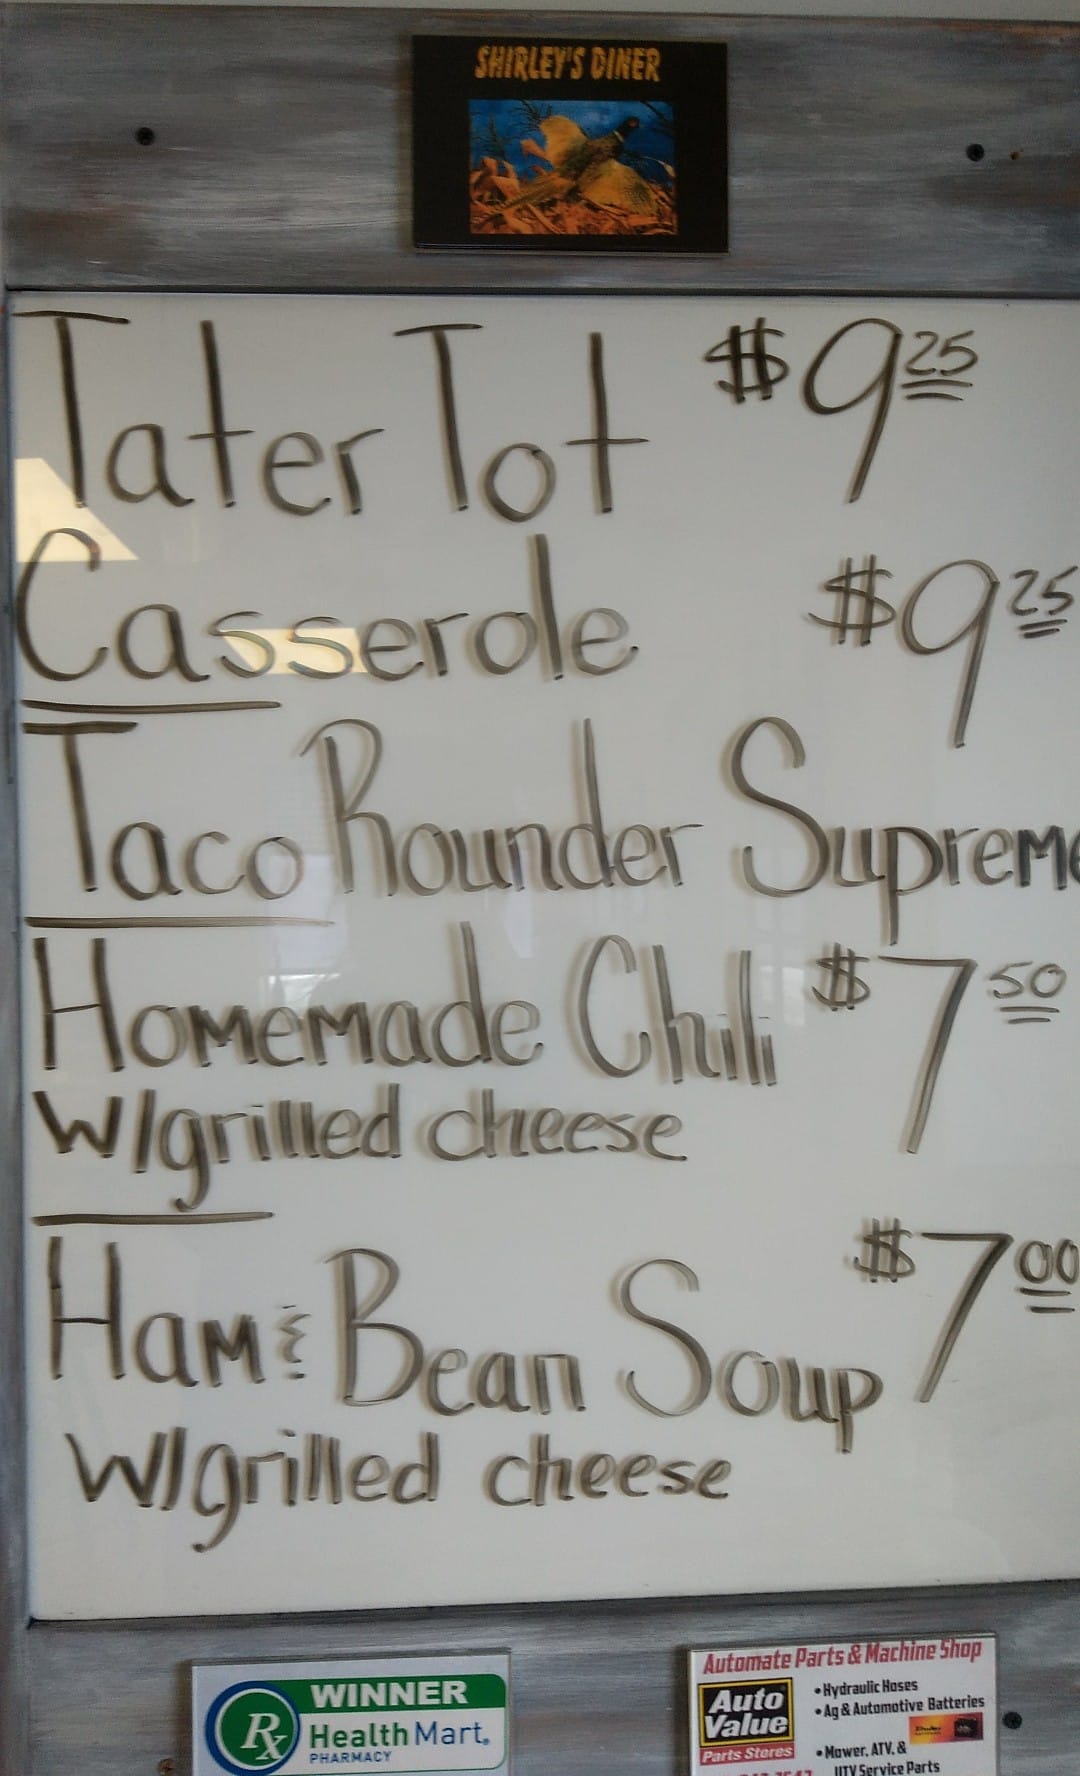 SHIRLEY'S DINER
Tater Tot $9.25
Casserole $9.25
Taco Rounder Supreme
Homemade Chili $7.50
W/grilled cheese
Ham & Bean Soup $7.00
W/grilled cheese
WINNER
Rx Health Mart.
PHARMACY
Automate Parts & Machine Shop
Auto Value
Parts Stores
• Hydraulic Hoses
• Ag & Automotive Batteries
• Mower, ATV, &
UTV Service Parts